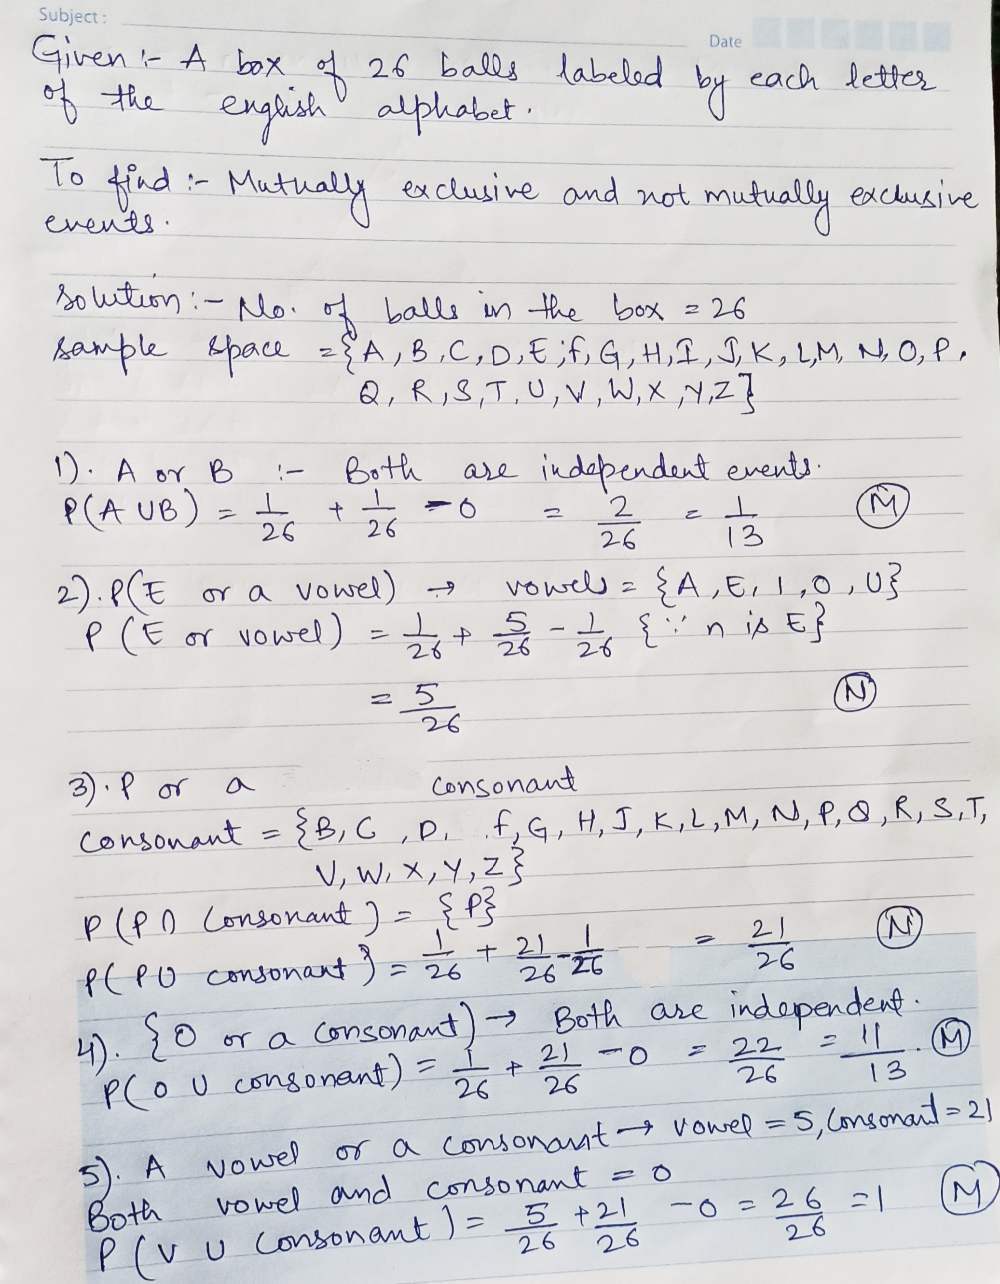 Subject :
Date
Given :- A box of 26 balls labeled by each letter
of the english alphabet.
To find :- Mutually exclusive and not mutually exclusive
events.
Solution :- No. of balls in the box = 26
sample space = {A, B, C, D, E, f, G, H, I, J, K, L, M, N, O, P,
Q, R, S, T, U, V, W, X, Y, Z}
1). A or B :- Both are independent events.
P(A ∪ B) = 1/26 + 1/26 - 0 = 2/26 = 1/13 (M)
2). P(E or a vowel) → vowels = {A, E, I, O, U}
P (E or vowel) = 1/26 + 5/26 - 1/26 {∵ n is E}
= 5/26 (N)
3). P or a consonant
Consonant = {B, C, D, f, G, H, J, K, L, M, N, P, Q, R, S, T,
V, W, X, Y, Z}
P (P ∩ Consonant) = {P}
P( P ∪ consonant } = 1/26 + 21/26 - 1/26 = 21/26 (N)
4). {O or a Consonant) → Both are independent.
P(O ∪ consonant) = 1/26 + 21/26 - 0 = 22/26 = 11/13. (M)
5). A vowel or a consonant → vowel = 5, Consonant = 21
Both vowel and consonant = 0
P (V ∪ Consonant) = 5/26 + 21/26 - 0 = 26/26 = 1 (M)